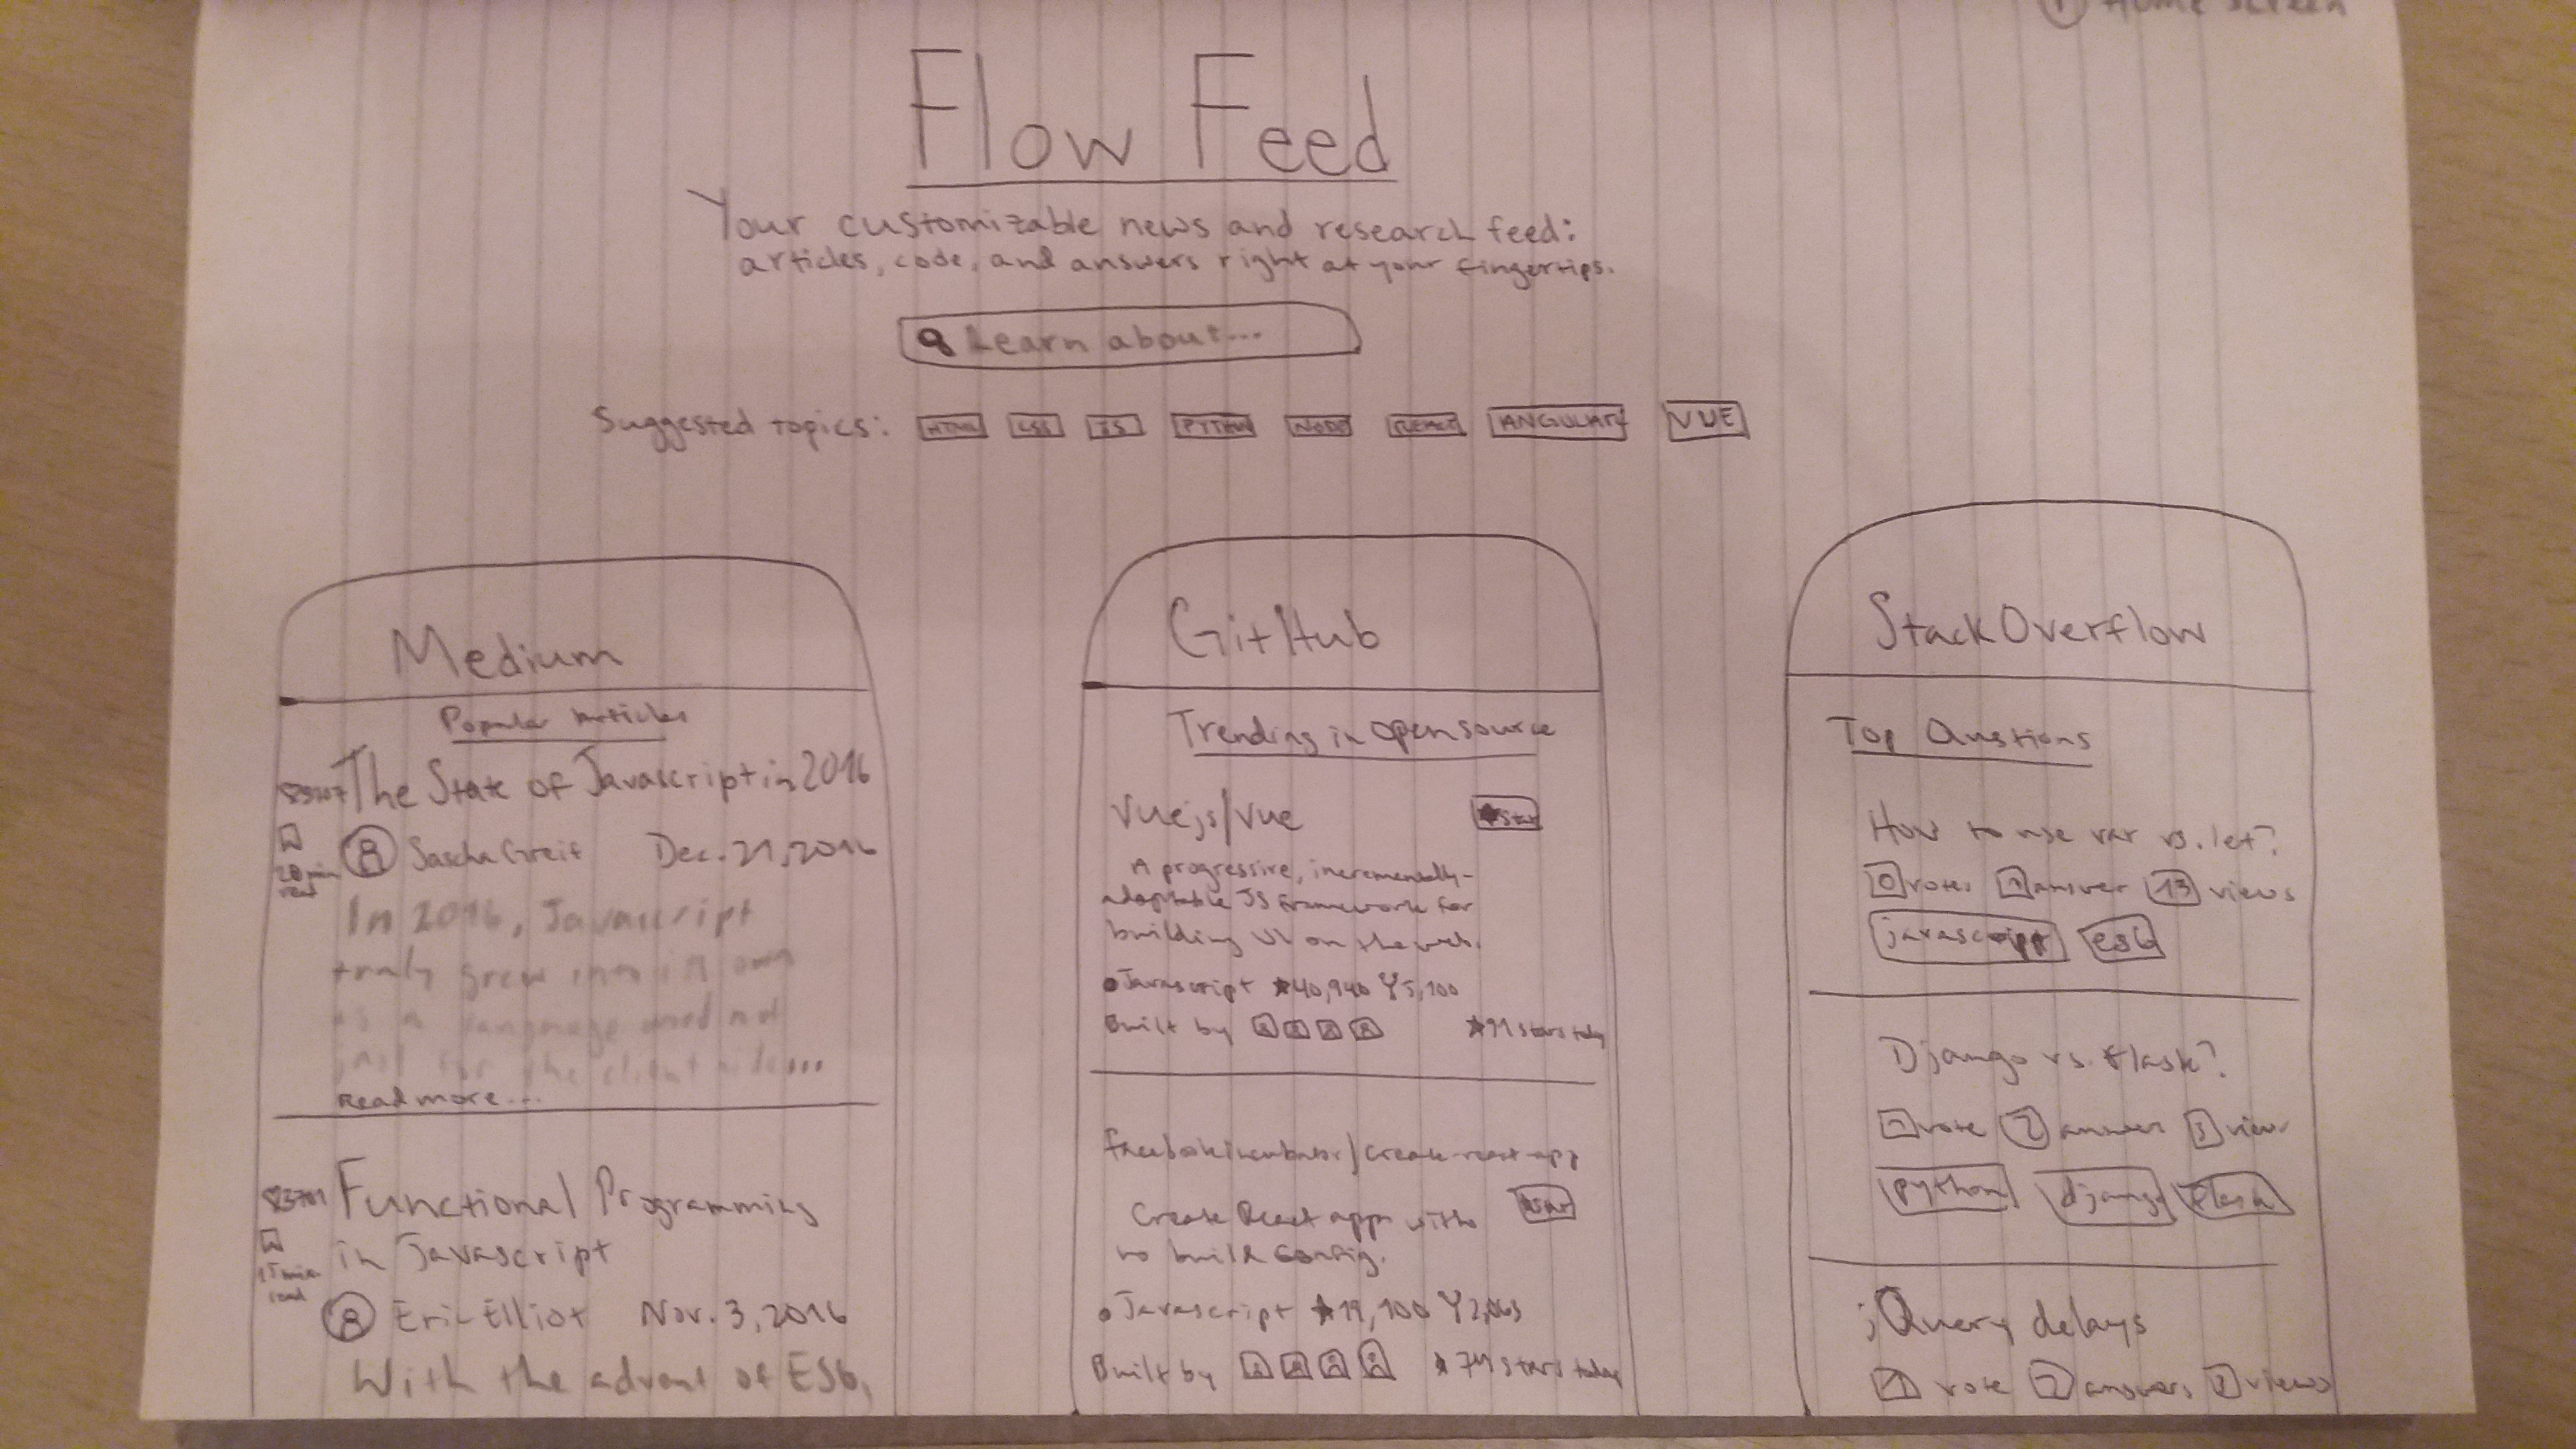 ① Home Screen
Flow Feed
Your customizable news and research feed:
articles, code, and answers right at your fingertips.
Learn about...
Suggested topics: HTML CSS JS PYTHON NODE REACT ANGULAR VUE
Medium
Popular Articles
The State of Javascript in 2016
Sacha Greif Dec. 21, 2016
28 min
read
In 2016, Javascript
truly grew into its own
as a language and not
just for the client side...
Read more...
Functional Programming
in Javascript
min
read
Eric Elliot Nov. 3, 2016
With the advent of ES6,
GitHub
Trending in open source
Vuejs/vue
★ Star
A progressive, incrementally-
adoptable JS framework for
building UI on the web.
Javascript ★40,940 5,100
Built by ★91 stars today
facebookincubator/create-react-app
Create React apps with
no build config.
★ Star
Javascript ★19,100
Built by ★74 stars today
StackOverflow
Top Questions
How to use var vs. let?
0 votes 1 answer 13 views
javascript es6
Django vs. flask?
1 vote 2 answers 3 views
python django flask
jQuery delays
1 vote answers views